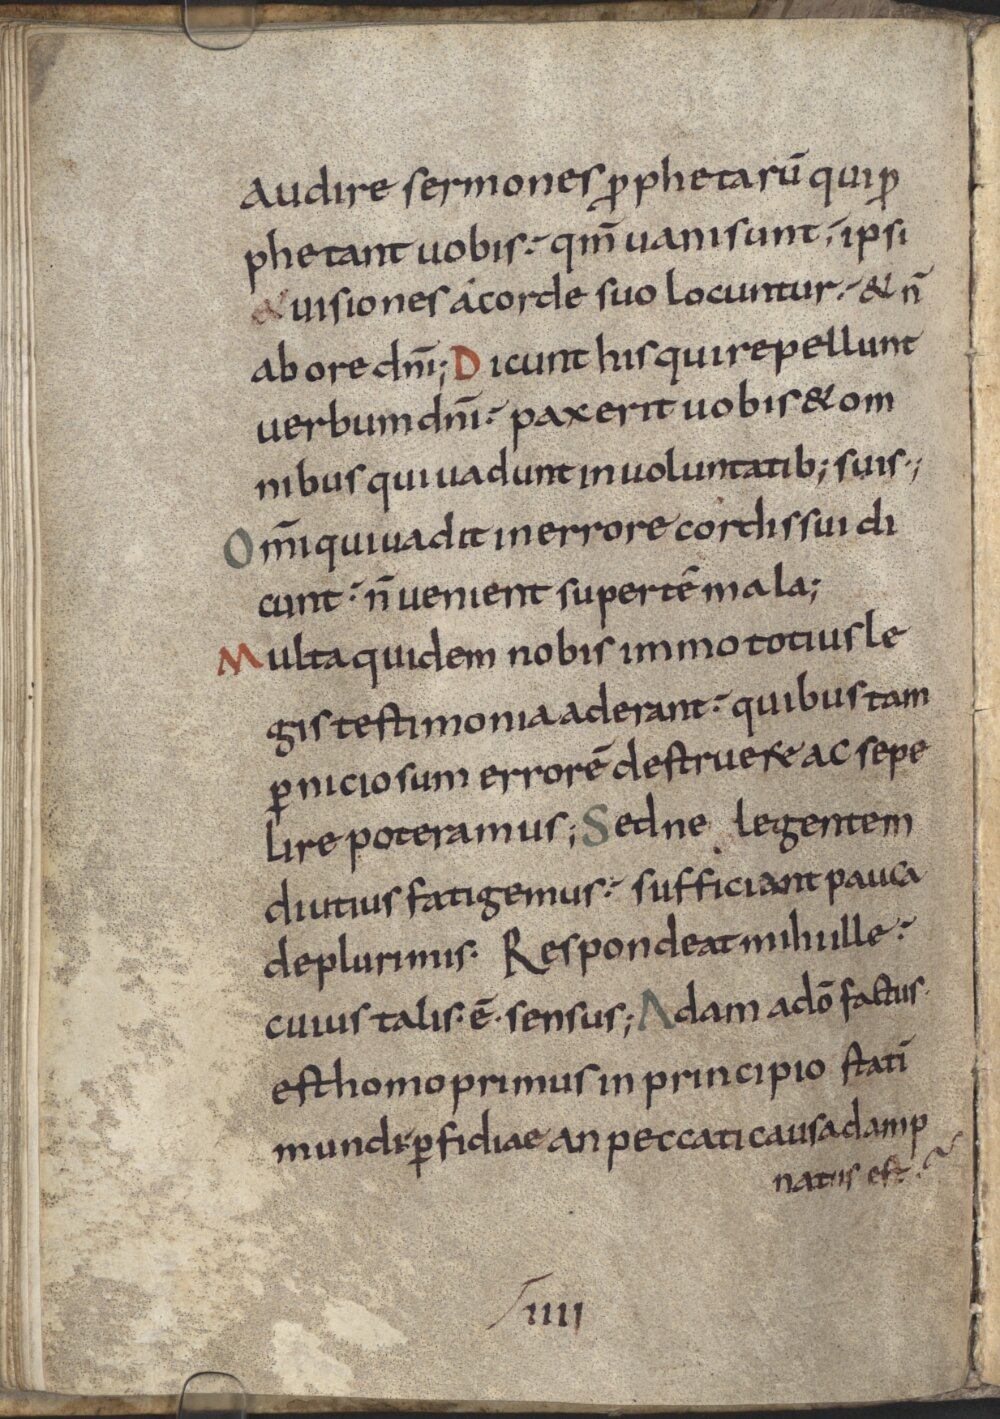 audire sermones ꝓphetarū quiꝓ
phetant uobis. qm̄ uani sunt, ipsi
& uisiones a corde suo locuntur. & n̄
ab ore dn̄i; Dicunt his qui repellunt
uerbum dn̄i. pax erit uobis & om
nibus qui uadunt in uoluntatib; suis.,
Om̄i qui uadit in errore cordis sui di
cunt. n̄ uenient super tē mala;
Multa quidem nobis immo totius le
gis testimonia aderant. quibus tam
ꝑniciosum errorē destruere ac sepe
lire poteramus; Sed ne legentem
diutius fatigemus. sufficiant pauca
de plurimis. Respondeat mihi ille.
cuius talis. ē. sensus; Adam a dō factus.
est homo primus in principio statī
mundi. ꝑfidiae an peccati causa damp
natus est.
IIII